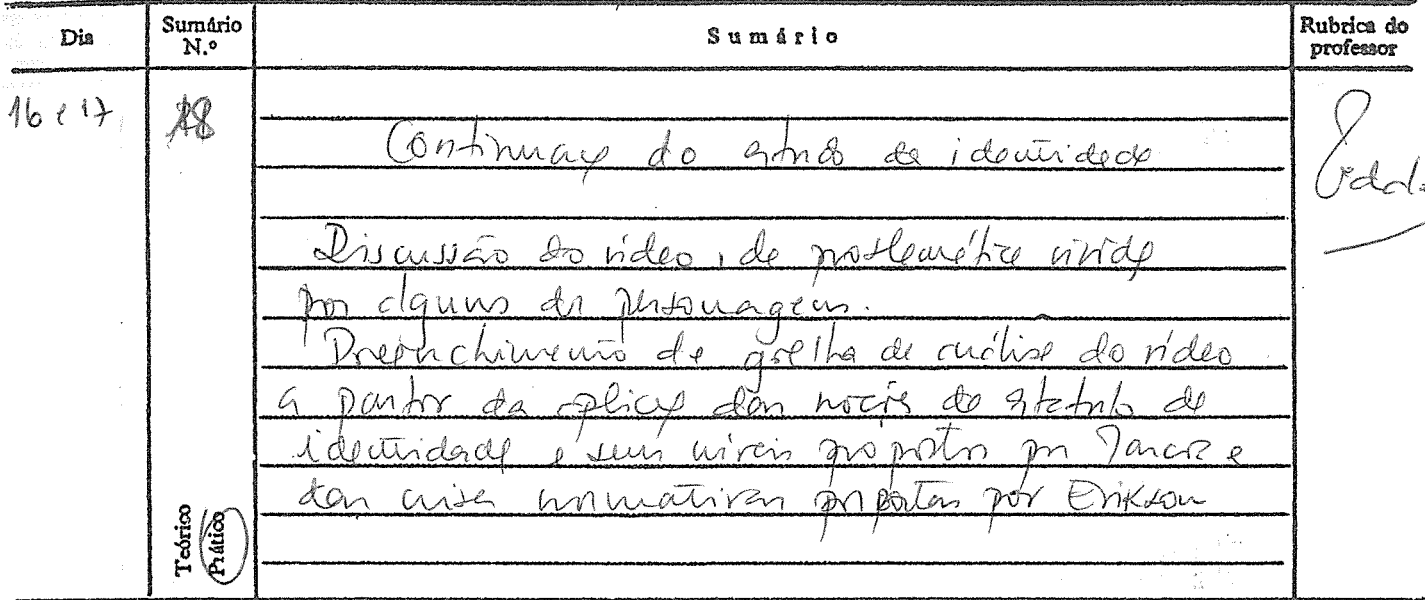 Dia Sumário N.º Sumário Rubrica do professor
16 e 17 18 Continuação do estudo da identidade
Discussão do vídeo, da problemática vivida
por alguns dos personagens.
Preenchimento da grelha de análise do vídeo
a partir da aplicação das noções de estatuto de
identidade e seus níveis propostos por Marcia e
das crises normativas propostas por Erikson
Teórico
Prático